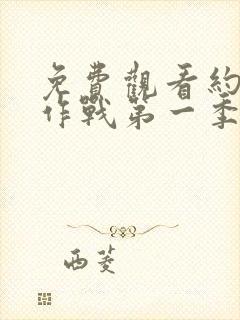 免費觀看約
作戰第一季
西菱